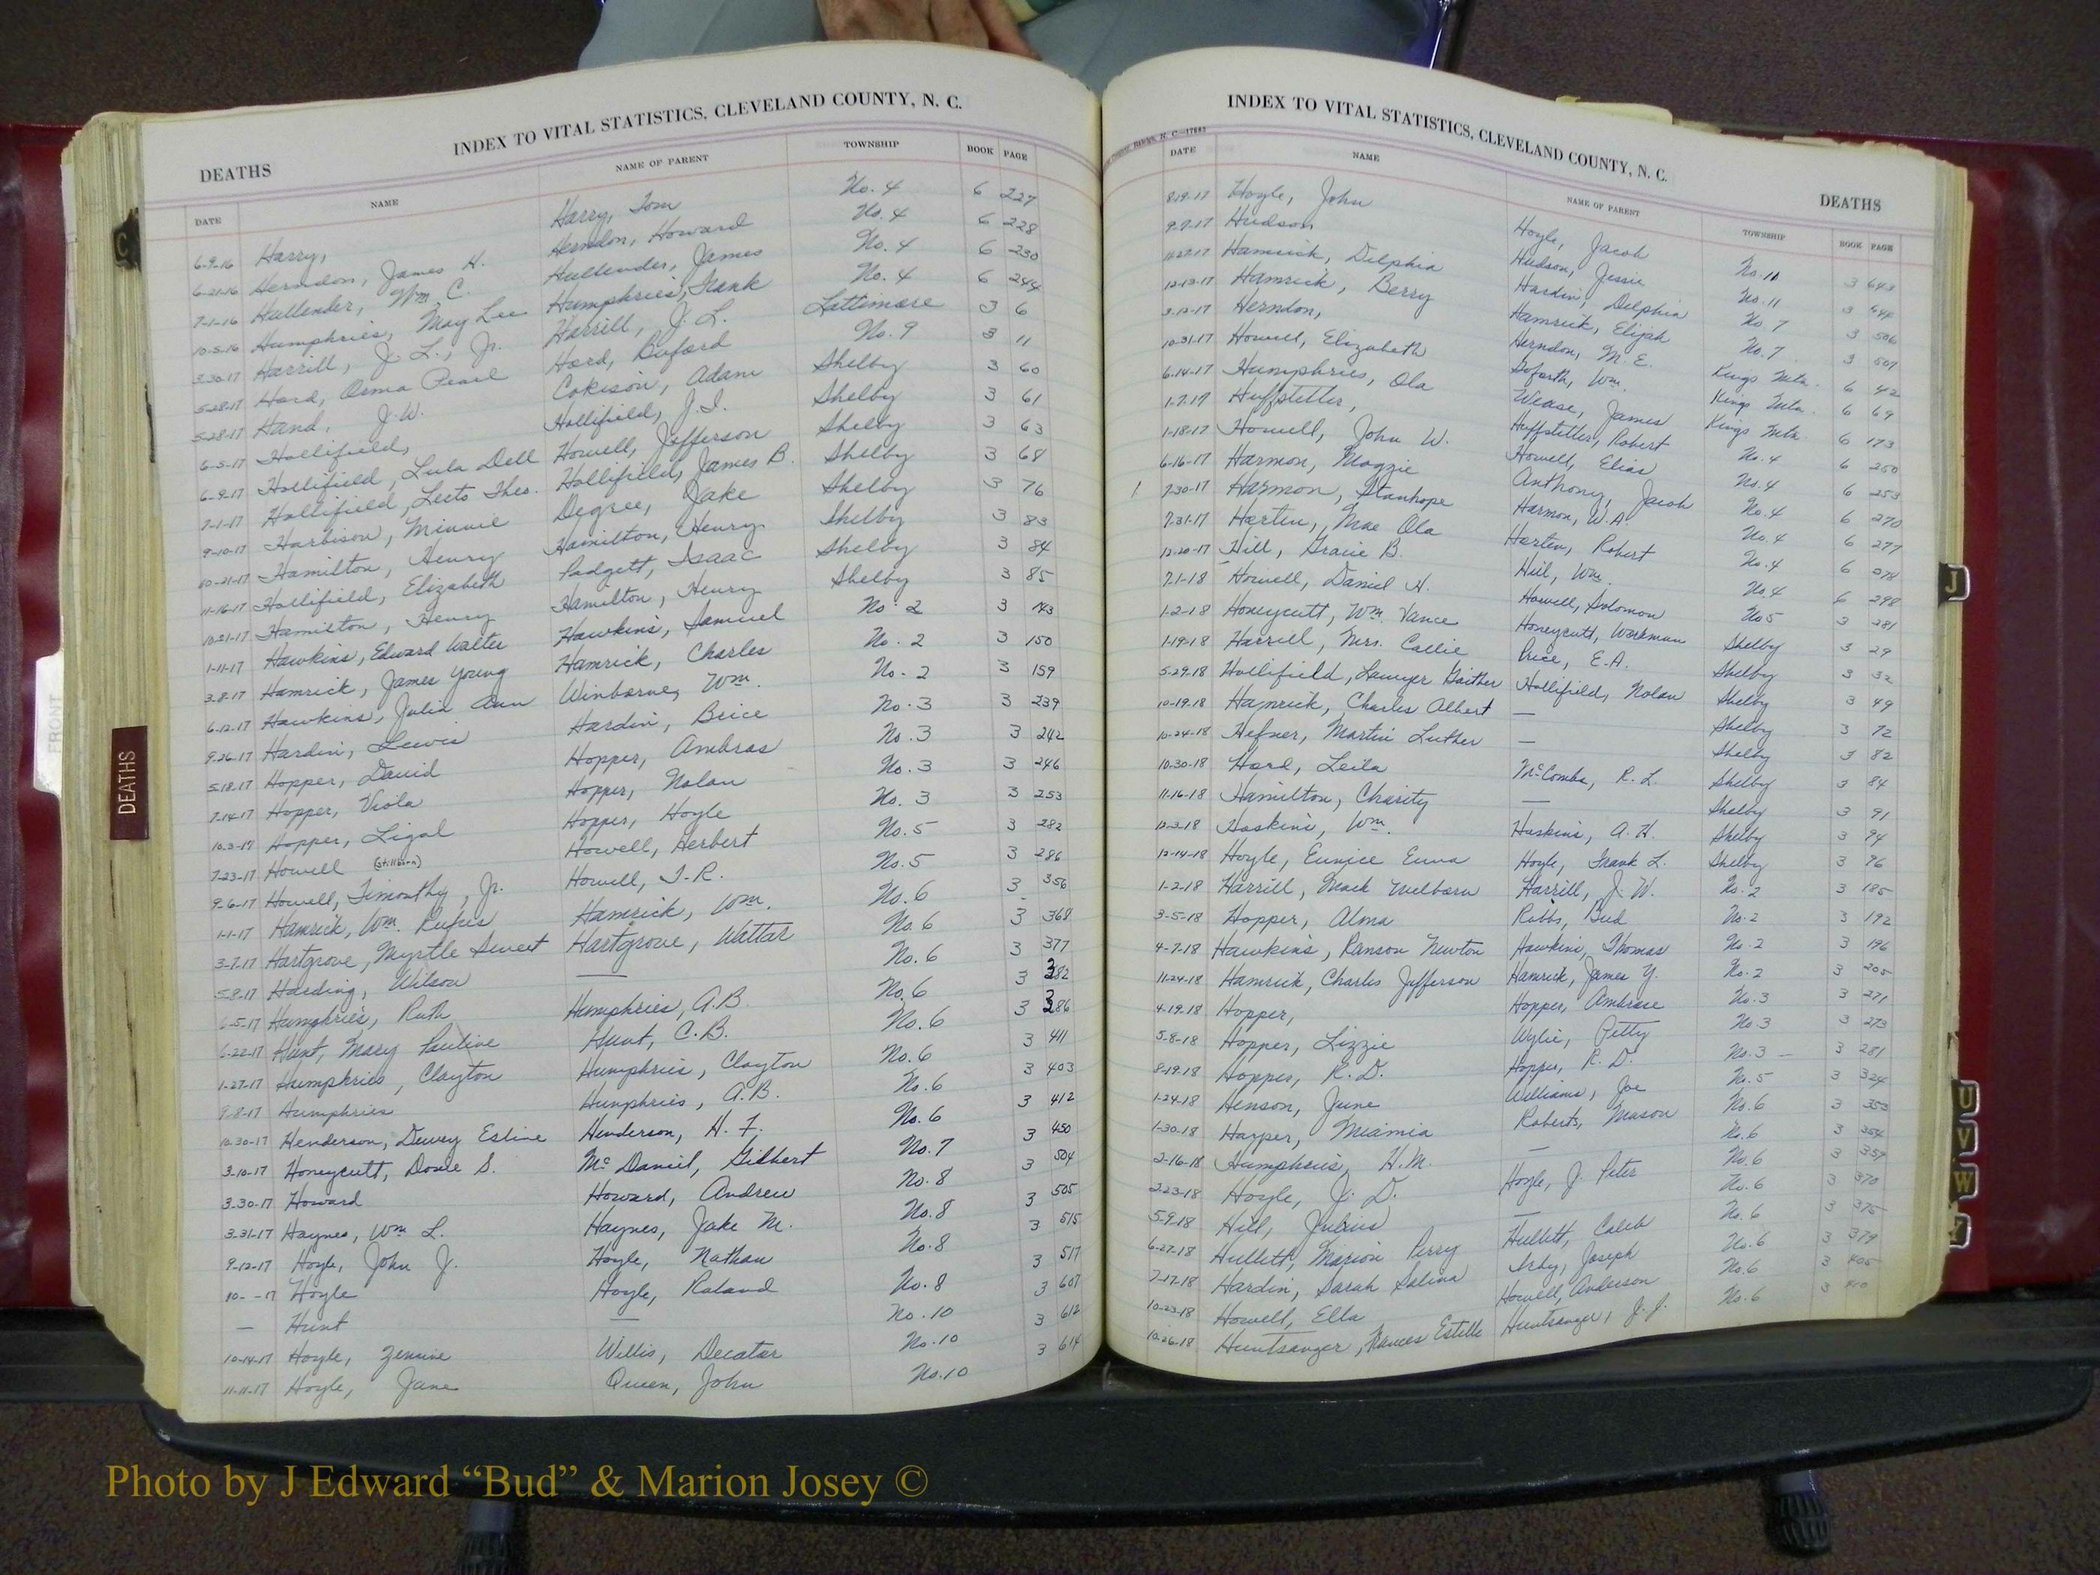 INDEX TO VITAL STATISTICS, CLEVELAND COUNTY, N. C.
DEATHS
DATE NAME NAME OF PARENT TOWNSHIP BOOK PAGE
6-9-16 Harry, Harry, Tom No. 4 6 227
6-21-16 Herndon, James H. Herndon, Howard No. 4 6 228
7-1-16 Hullender, Wm. C. Hullender, James No. 4 6 230
10-5-16 Humphries, May Lee Humphries, Frank No. 4 6 244
3-30-17 Harrill, J. L., Jr. Harrill, J. L. Lattimore 3 6
5-28-17 Hord, Orma Pearl Hord, Buford No. 9 3 11
5-28-17 Hand, J. W. Adam Shelby 3 60
6-5-17 Hollifield, Hollifield, J. I. Shelby 3 61
6-9-17 Hollifield, Lula Dell Howell, Jefferson Shelby 3 63
7-1-17 Hollifield, Leets Theo. Hollifield, James B. Shelby 3 68
9-10-17 Harbison, Minnie Degree, Jake Shelby 3 76
10-21-17 Hamilton, Henry Hamilton, Henry Shelby 3 83
11-16-17 Hollifield, Elizabeth Padgett, Isaac Shelby 3 84
10-21-17 Hamilton, Henry Hamilton, Henry Shelby 3 85
1-11-17 Hawkins, Edward Walter Hawkins, Samuel No. 2 3 143
3-8-17 Hamrick, James Young Hamrick, Charles No. 2 3 150
6-12-17 Hawkins, Julia Ann Winborne, Wm. No. 2 3 159
9-26-17 Hardin, Lewis Hardin, Brice No. 3 3 239
5-18-17 Hopper, David Hopper, Ambras No. 3 3 242
7-14-17 Hopper, Viola Hopper, Nolan No. 3 3 246
10-3-17 Hopper, Ligal Hopper, Hoyle No. 3 3 253
7-23-17 Howell (stillborn) Howell, Herbert No. 5 3 282
9-6-17 Howell, Timonthy, Jr. Howell, T. R. No. 5 3 286
1-1-17 Hamrick, Wm. Rufus Hamrick, Wm. No. 6 3 356
3-7-17 Hartgrove, Myrtle Sweet Hartgrove, Wattar No. 6 3 368
5-8-17 Harding, Wilson — No. 6 3 377
6-5-17 Humphries, Ruth Humphries, A. B. No. 6 3 382
6-22-17 Hunt, Mary Pauline Hunt, C. B. No. 6 3 386
1-27-17 Humphries, Clayton Humphries, Clayton No. 6 3 411
8-8-17 Humphries Humphries, A. B. No. 6 3 403
10-30-17 Henderson, Dewey Estine Henderson, H. F. No. 6 3 412
3-10-17 Honeycutt, Dovie S. McDaniel, Gilbert No. 7 3 450
3-30-17 Howard Howard, Andrew No. 8 3 504
3-31-17 Haynes, Wm L. Haynes, Jake M. No. 8 3 505
9-12-17 Hoyle, John J. Hoyle, Nathan No. 8 3 515
10- -17 Hoyle Hoyle, Roland No. 8 3 517
— Hunt — No. 10 3 607
10-14-17 Hoyle, Willis, Decatar No. 10 3 612
11-11-17 Hoyle, Jane Queen, John No. 10 3 614
INDEX TO VITAL STATISTICS, CLEVELAND COUNTY, N. C.
DEATHS
DATE NAME NAME OF PARENT TOWNSHIP BOOK PAGE
8-19-17 Hoyle, John Hoyle, Jacob No. 11 3 643
9-7-17 Hudson Hudson, Jessie No. 11 3 644
11-27-17 Hamrick, Delphia Hardin, Delphia No. 7 3 506
12-13-17 Hamrick, Berry Hamrick, Elijah No. 7 3 507
3-12-17 Herndon, Herndon, M. E. Kings Mtn. 6 42
10-31-17 Howell, Elizabeth Goforth, Wm. Kings Mtn. 6 69
6-14-17 Humphries, Ola Wease, James Kings Mtn. 6 173
1-7-17 Huffstetler, Huffstetler, Robert No. 4 6 250
1-18-17 Howell, John W. Howell, Elias No. 4 6 253
6-16-17 Harmon, Maggie Anthony, Jacob No. 4 6 270
7-30-17 Harmon, Stanhope Harmon, W. A. No. 4 6 277
7-31-17 Horten, Mae Ola Horten, Robert No. 4 6 278
12-20-17 Hill, Gracie B. Hill, Wm. No. 4 6 298
7-1-18 Howell, Daniel H. Howell, Solomon No 5 3 281
1-2-18 Honeycutt, Wm. Vance Honeycutt, Workman Shelby 3 29
1-19-18 Harrill, Mrs. Callie Price, E. A. Shelby 3 32
5-29-18 Hollifield, Lawyer Gaither Hollifield, Nolan Shelby 3 49
10-19-18 Hamrick, Charles Albert — Shelby 3 72
10-24-18 Hefner, Martin Luther — Shelby 3 82
10-30-18 Hord, Leila McCombs, R. L. Shelby 3 84
11-16-18 Hamilton, Charity — Shelby 3 91
12-3-18 Haskins, Wm. Haskins, A. H. Shelby 3 94
12-14-18 Hoyle, Eunice Euna Hoyle, Frank L. Shelby 3 96
1-2-18 Harrill, Mack Welborn Harrill, J. W. No. 2 3 185
3-5-18 Hopper, Alma Robbs, Bud No. 2 3 192
4-7-18 Hawkins, Ranson Newton Hawkins, Thomas No. 2 3 196
11-24-18 Hamrick, Charles Jefferson Hamrick, James Y. No. 2 3 205
4-19-18 Hopper, Hopper, Ambrose No. 3 3 271
5-8-18 Hopper, Lizzie Wylie, Petty No. 3 3 273
8-19-18 Hopper, R. D. Hopper, R. D. No. 3 3 281
1-24-18 Henson, June Williams, Joe No. 5 3 324
1-30-18 Harper, Miamia Roberts, Mason No. 6 3 353
2-16-18 Humphries, H. M. — No. 6 3 354
2-23-18 Hoyle, J. D. Hoyle, J. Peter No. 6 3 357
5-9-18 Hill, Julius — No. 6 3 370
6-27-18 Hullett, Marion Perry Hullett, Caleb No. 6 3 375
7-17-18 Hardin, Sarah Salina Irby, Joseph No. 6 3 379
10-23-18 Howell, Ella Howell, Anderson No. 6 3 405
10-26-18 Huntsanger, Frances Estelle Huntsanger, J. J. No. 6 3 410
C
FRONT
DEATHS
J
U
V
W
Photo by J Edward “Bud” & Marion Josey ©